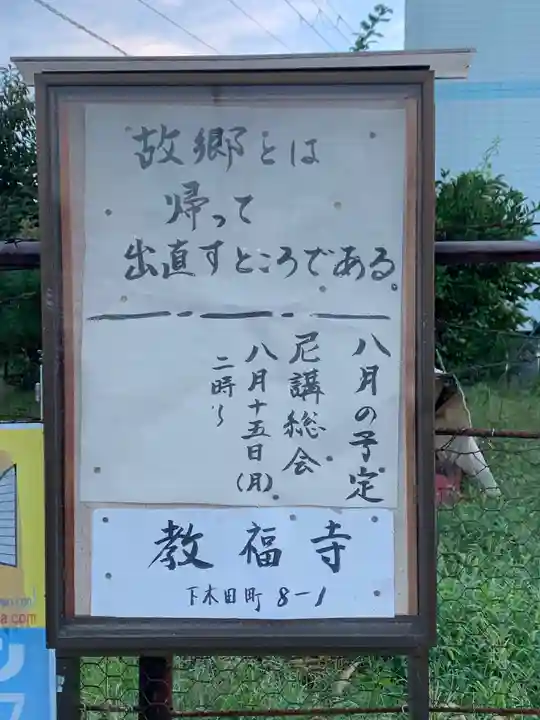 故郷とは
帰って
出直すところである。
八月の予定
尼講総会
八月十五日(月)
二時〜
教福寺
下木田町 8-1
a.com